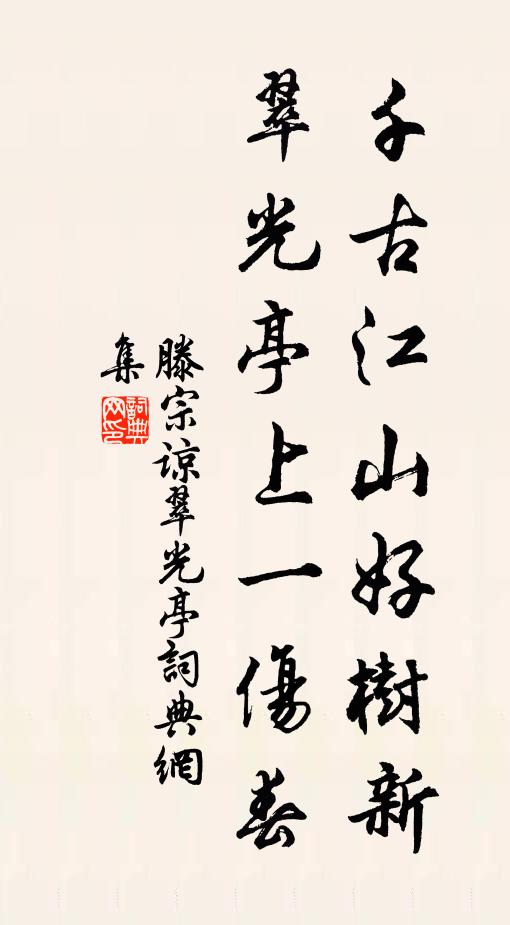 千古江山好樹新
翠光亭上一傷春
滕宗諒翠光亭詞典網
集
詞典网印